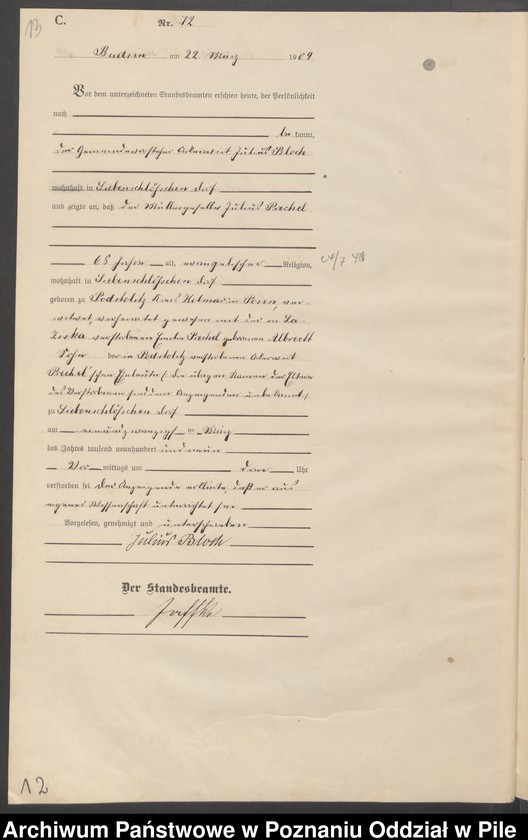 13
C.
Nr. 12
Budsin am 22. März 1909
Vor dem unterzeichneten Standesbeamten erschien heute, der Persönlichkeit
nach
be kannt,
der Gemeindevorsteher Ackerwirt Julius Bloch
wohnhaft in Siebenschlößchen Dorf
und zeigte an, daß der Müllergeselle Julius Prechel
65 Jahre alt, evangelischer Religion,
wohnhaft in Siebenschlößchen Dorf
geboren zu Podstolitz Kreis Kolmar in Posen, ver-
witwet, verheiratet gewesen mit der in La-
ziska verstorbenen Emilie Prechel geborenen Albrecht
Sohn der in Podstolitz verstorbenen Ackerwirt
Prechel'schen Eheleute (die übrigen Namen der Eltern
des Verstorbenen sind dem Anzeigenden unbekannt)
zu Siebenschlößchen Dorf
am neunzehn März
des Jahres tausend neunhundert und neun
Vor mittags um drei Uhr
verstorben sei. Der Anzeigende erklärte, daß er aus
eigener Wissenschaft unterrichtet sei
Vorgelesen, genehmigt und unterschrieben
Julius Bloch
Der Standesbeamte.
Jaffke
12
Archiwum Państwowe w Poznaniu Oddział w Pile